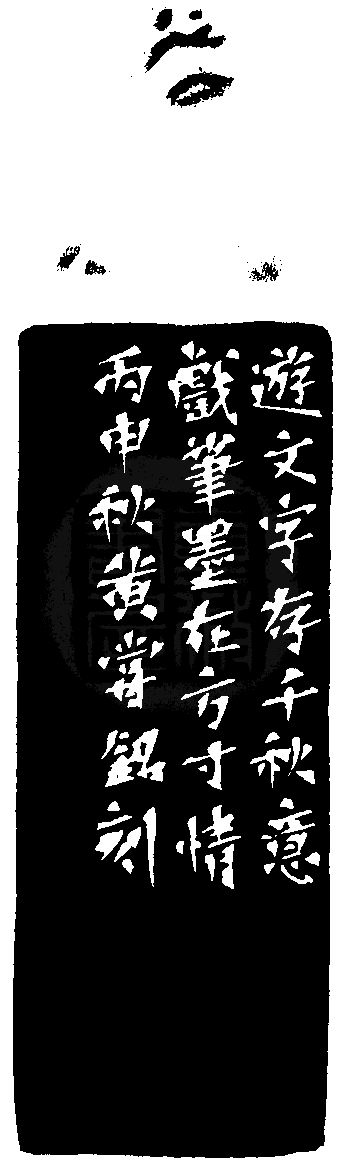 遊文字存千秋意
戲筆墨在方寸情
丙申秋黄嘗銘刻